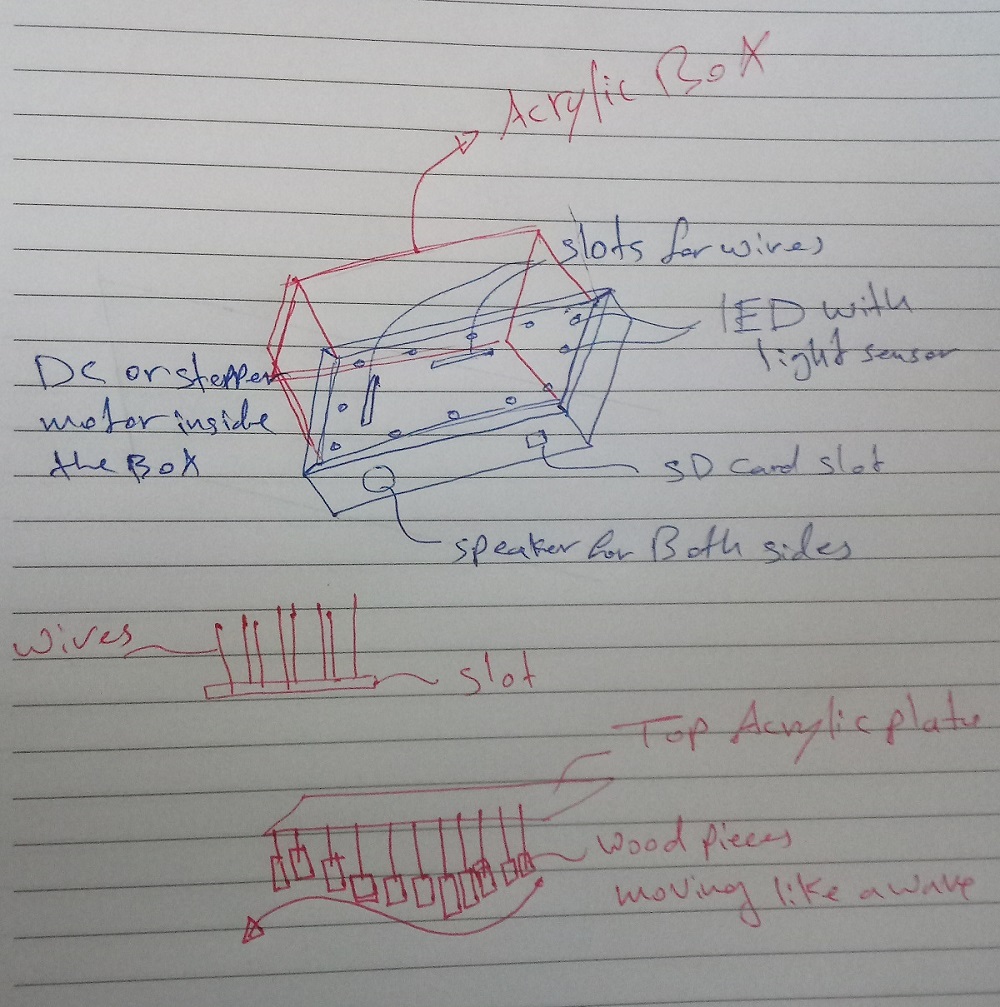 Acrylic Box
slots for wires
LED with
light sensor
DC or stepper
motor inside
the Box
SD card slot
speaker for Both sides
wires
slot
Top Acrylic plate
wood pieces
moving like a wave